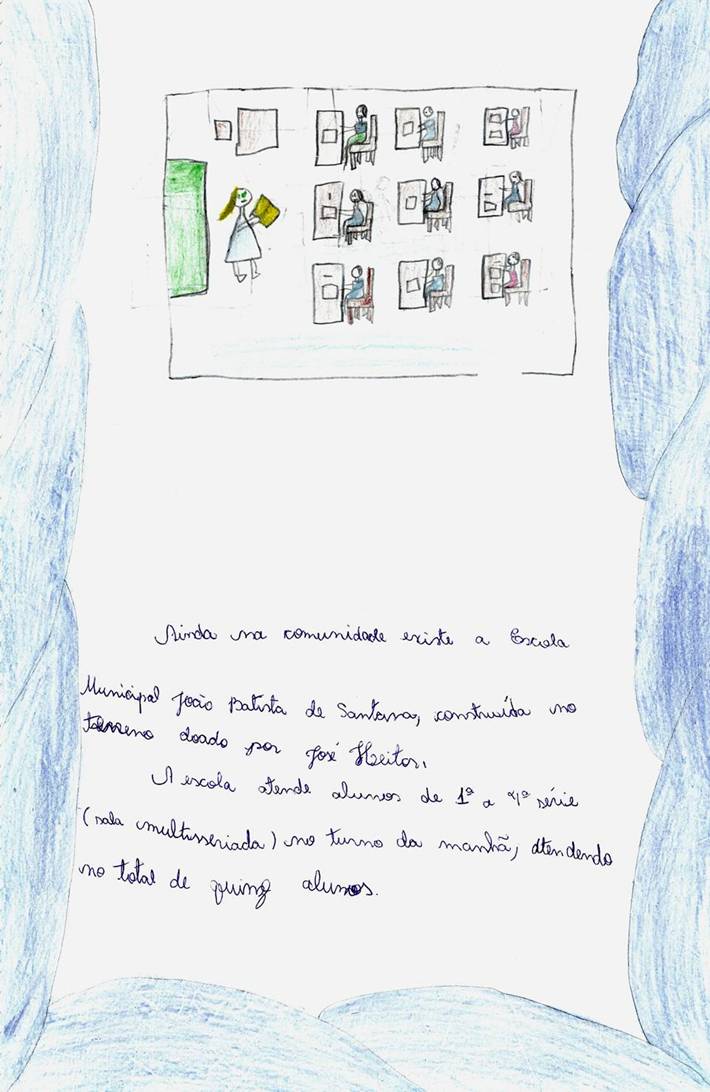 Ainda na comunidade existe a Escola
Municipal João Batista de Santana, construída no
terreno doado por José Heitor.
A escola atende alunos de 1ª a 4ª série
(sala multisseriada) no turno da manhã, atendendo
no total de quinze alunos.